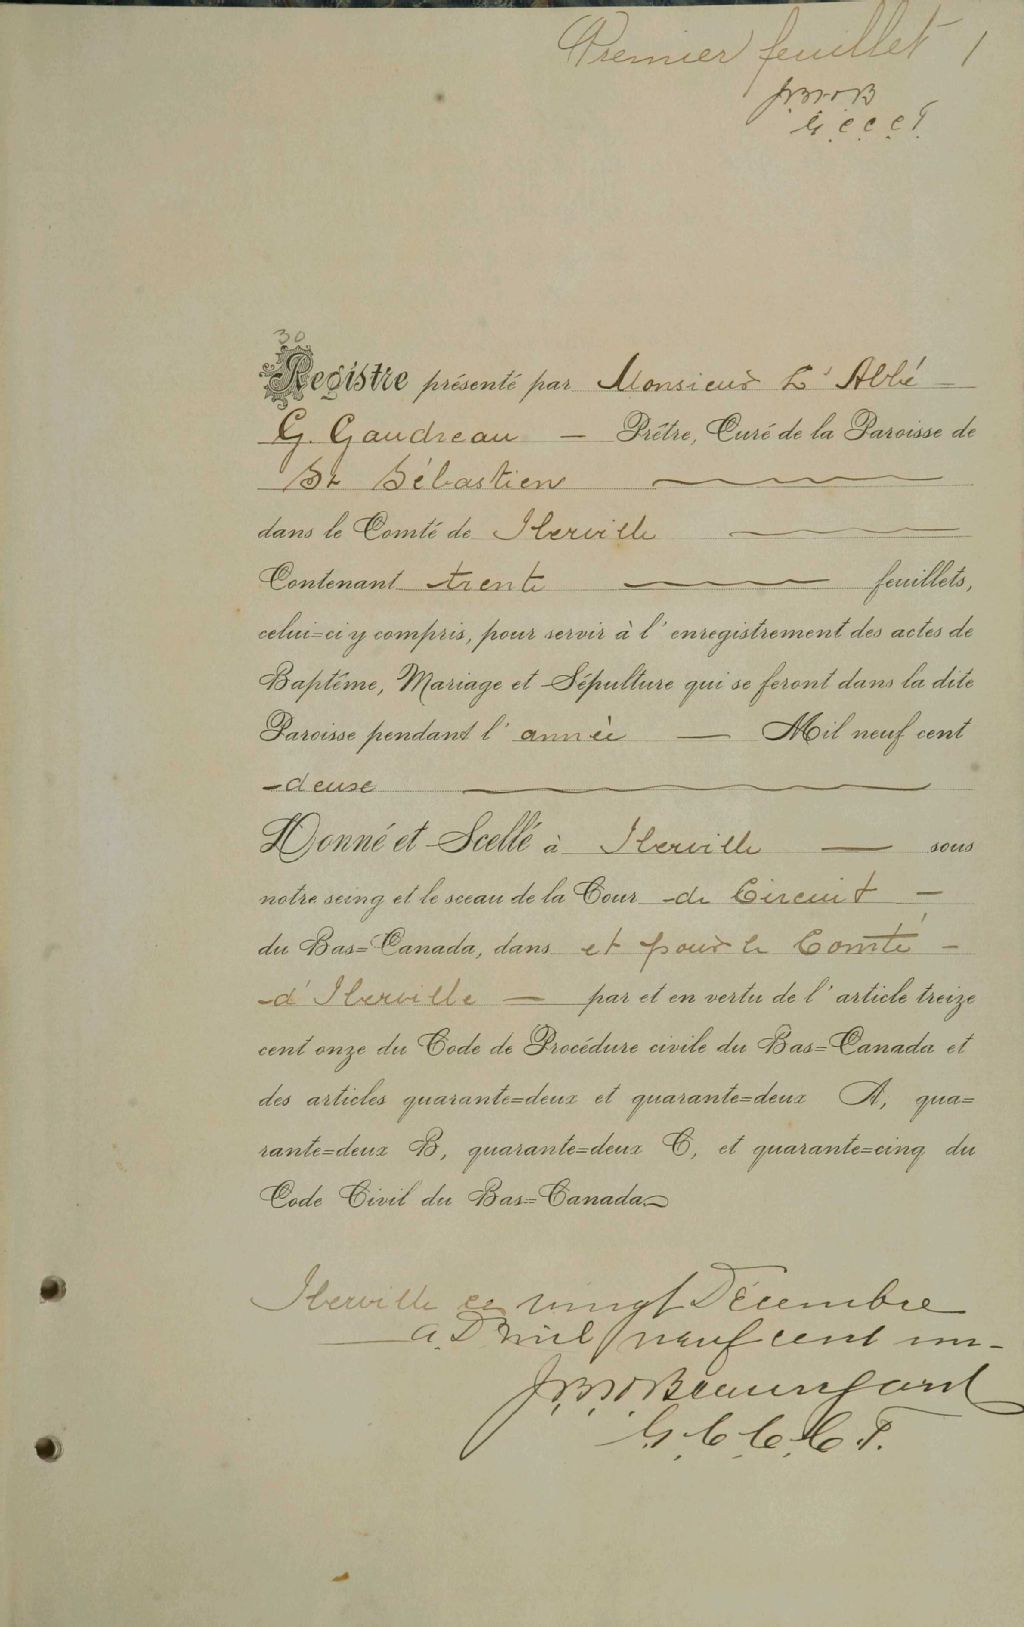 Premier feuillet 1
G. C. C. C. T.
30
Registre présenté par Monsieur L'Abbé
G. Gaudreau — Prêtre, Curé de la Paroisse de
St Sébastien
dans le Comté de Iberville
Contenant trente feuillets,
celui=ci y compris, pour servir à l'enregistrement des actes de
Baptême, Mariage et Sépulture qui se feront dans la dite
Paroisse pendant l'année — Mil neuf cent
deux
Donné et Scellé à Iberville — sous
notre seing et le sceau de la Cour de Circuit —
du Bas=Canada, dans et pour le Comté —
d'Iberville — par et en vertu de l'article treize
cent onze du Code de Procédure civile du Bas=Canada et
des articles quarante=deux et quarante=deux A, qua=
rante=deux B, quarante=deux C, et quarante=cinq du
Code Civil du Bas=Canada
Iberville ce vingt Décembre
A.D. mil neuf cent un
G. C. C. C. T.